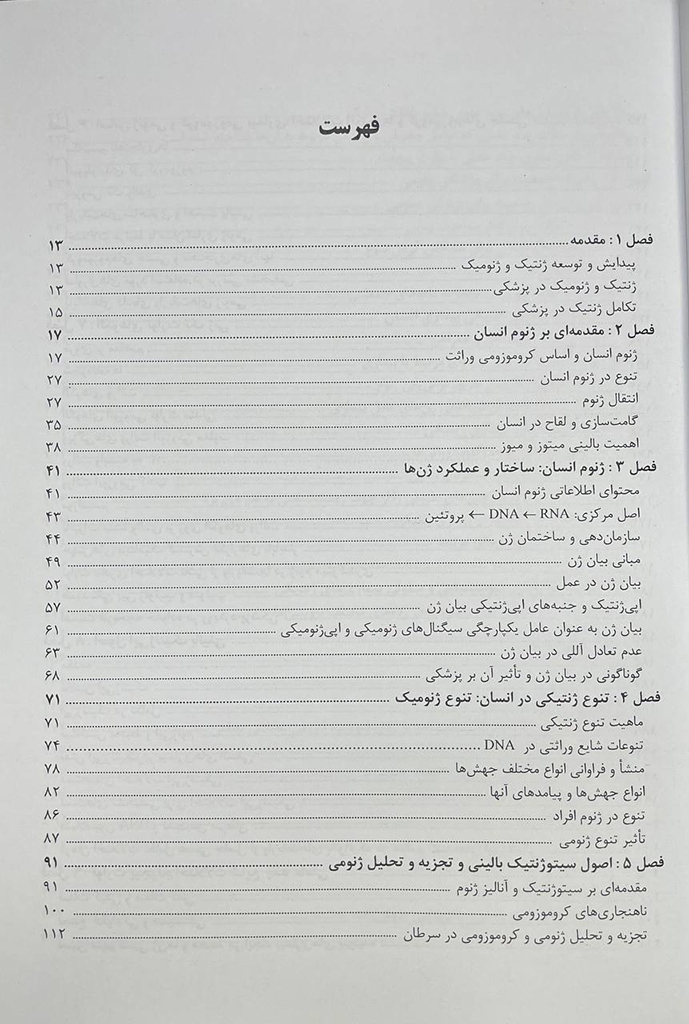 فهرست
فصل ۱: مقدمه ........ ۱۳
پیدایش و توسعه ژنتیک و ژنومیک ........ ۱۳
ژنتیک و ژنومیک در پزشکی ........ ۱۳
تکامل ژنتیک در پزشکی ........ ۱۵
فصل ۲: مقدمه‌ای بر ژنوم انسان ........ ۱۷
ژنوم انسان و اساس کروموزومی وراثت ........ ۱۷
تنوع در ژنوم انسان ........ ۲۷
انتقال ژنوم ........ ۲۷
گامت‌سازی و لقاح در انسان ........ ۳۵
اهمیت بالینی میتوز و میوز ........ ۳۸
فصل ۳: ژنوم انسان: ساختار و عملکرد ژن‌ها ........ ۴۱
محتوای اطلاعاتی ژنوم انسان ........ ۴۱
اصل مرکزی: DNA ← RNA ← پروتئین ........ ۴۳
سازمان‌دهی و ساختمان ژن ........ ۴۴
مبانی بیان ژن ........ ۴۹
بیان ژن در عمل ........ ۵۲
اپی‌ژنتیک و جنبه‌های اپی‌ژنتیکی بیان ژن ........ ۵۷
بیان ژن به عنوان عامل یکپارچگی سیگنال‌های ژنومیکی و اپی‌ژنومیکی ........ ۶۱
عدم تعادل آللی در بیان ژن ........ ۶۳
گوناگونی در بیان ژن و تأثیر آن بر پزشکی ........ ۶۸
فصل ۴: تنوع ژنتیکی در انسان: تنوع ژنومیک ........ ۷۱
ماهیت تنوع ژنتیکی ........ ۷۱
تنوعات شایع وراثتی در DNA ........ ۷۴
منشأ و فراوانی انواع مختلف جهش‌ها ........ ۷۸
انواع جهش‌ها و پیامدهای آنها ........ ۸۲
تنوع در ژنوم افراد ........ ۸۶
تأثیر تنوع ژنومی ........ ۸۷
فصل ۵: اصول سیتوژنتیک بالینی و تجزیه و تحلیل ژنومی ........ ۹۱
مقدمه‌ای بر سیتوژنتیک و آنالیز ژنوم ........ ۹۱
ناهنجاری‌های کروموزومی ........ ۱۰۰
تجزیه و تحلیل ژنومی و کروموزومی در سرطان ........ ۱۱۲